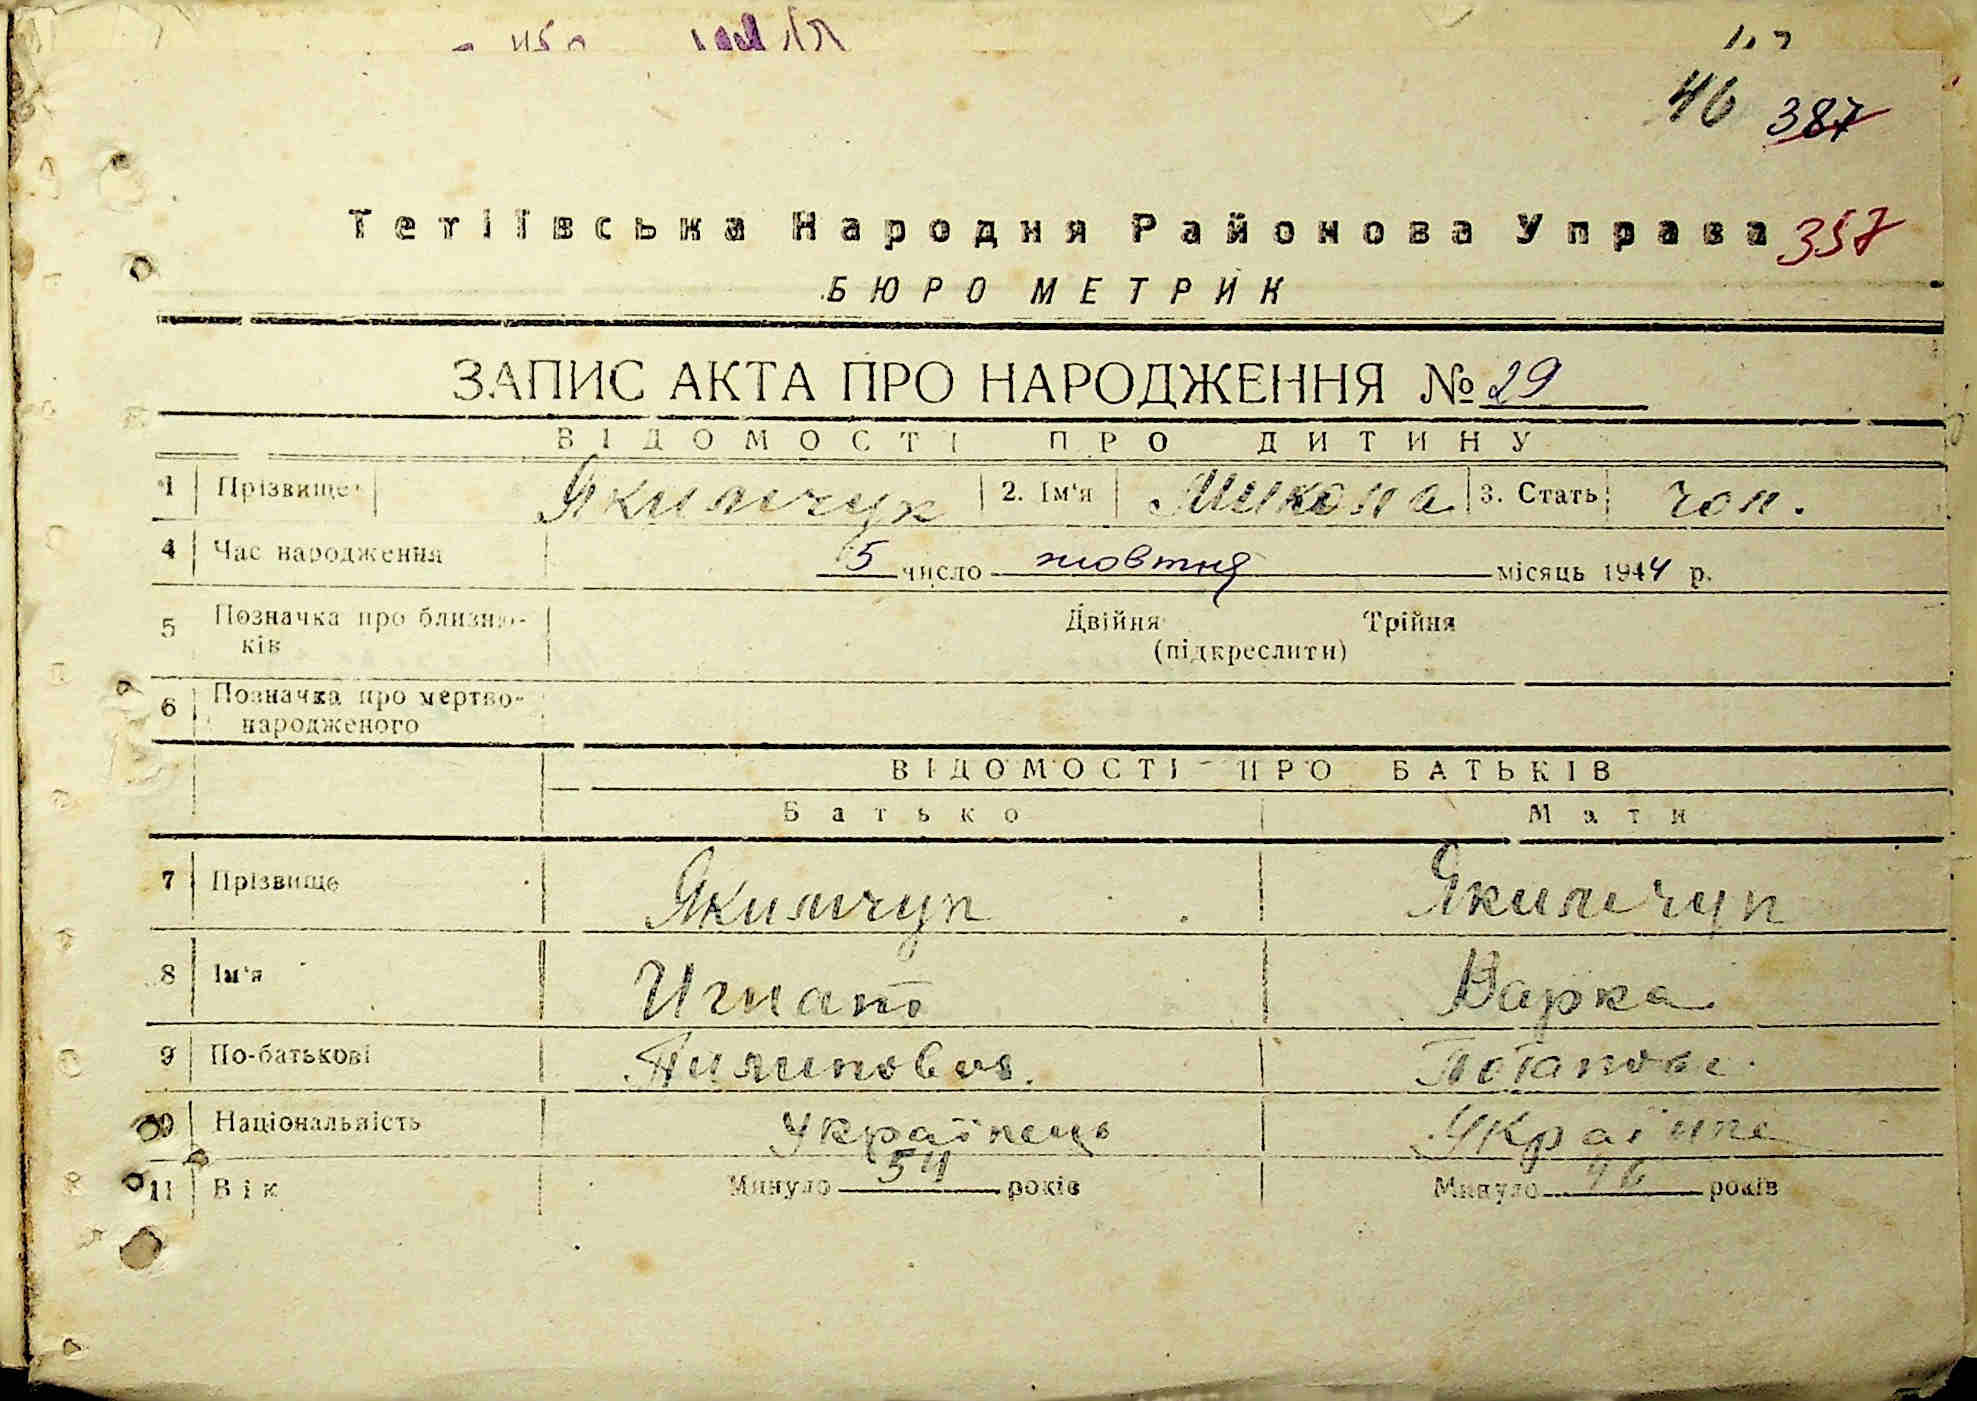 46 387
Тетіївська Народня Районова Управа 357
БЮРО МЕТРИК
ЗАПИС АКТА ПРО НАРОДЖЕННЯ № 29
ВІДОМОСТІ ПРО ДИТИНУ
1 Прізвище Якимчук 2. Ім'я Микола 3. Стать чол.
4 Час народження 5 число жовтня місяць 1944 р.
5 Позначка про близню- Двійня Трійня
ків (підкреслити)
6 Позначка про мертво-
народженого
ВІДОМОСТІ ПРО БАТЬКІВ
Батько Мати
7 Прізвище Якимчук Якимчук
8 Ім'я Игнат Варка
9 По-батькові Пилипович Потапов.
10 Національність Українець Українка
11 Вік Минуло 54 років Минуло років